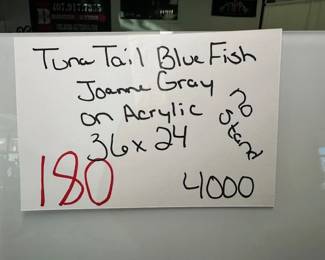 Tuna Tail Blue Fish
Joanne Gray
on Acrylic
36 x 24
stand
180
4000